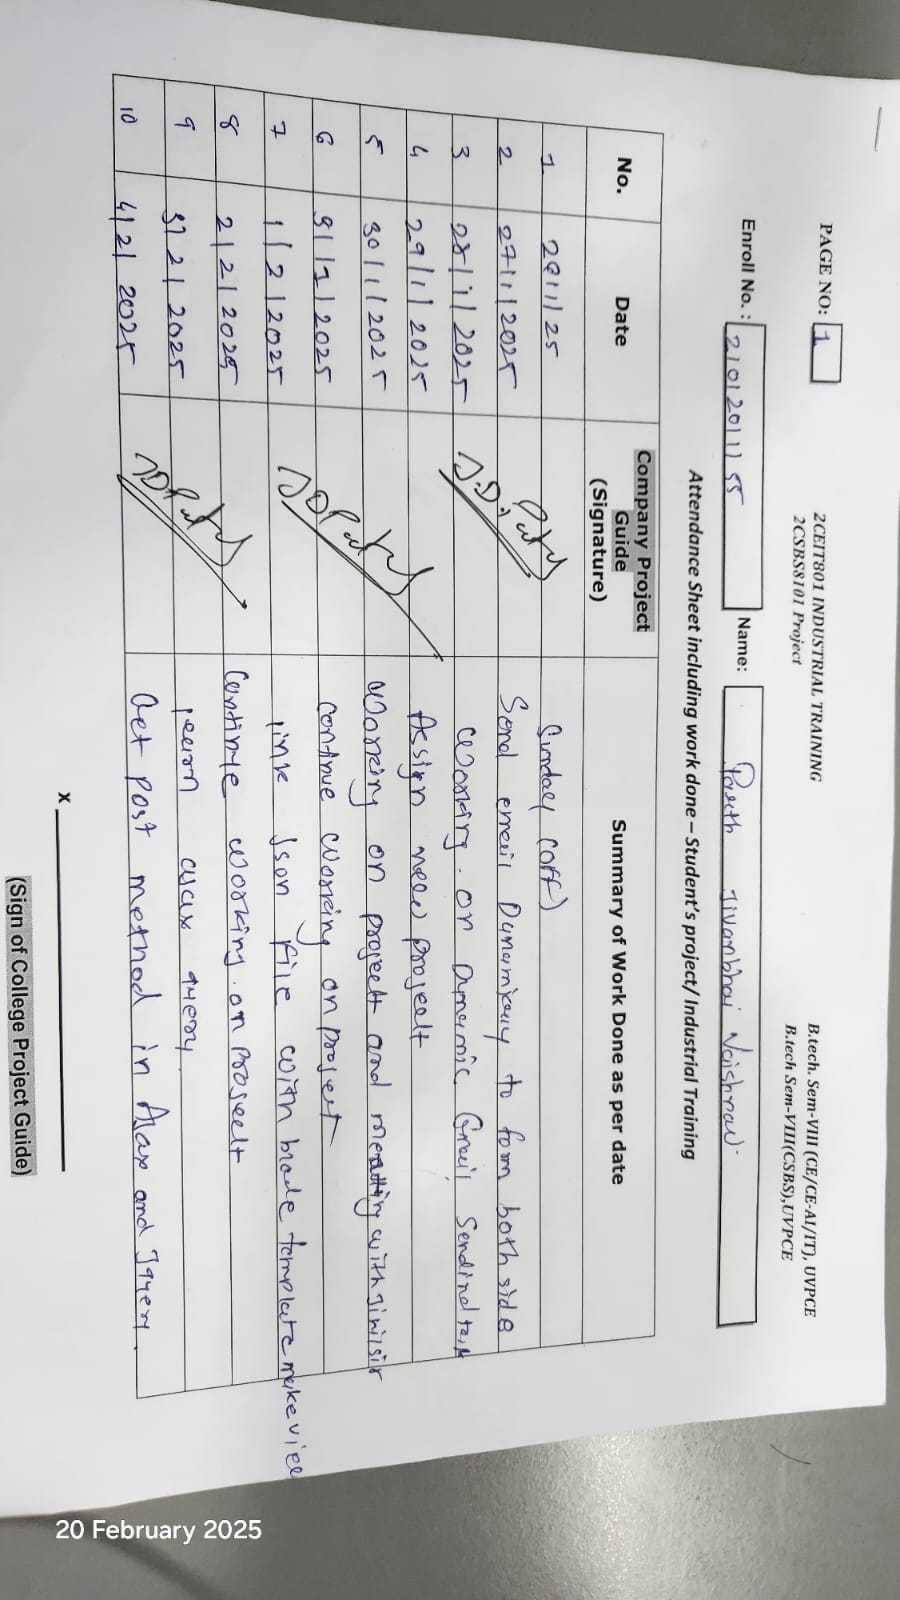 PAGE NO: 1
2CEIT801 INDUSTRIAL TRAINING
2CSBS8101 Project
B.tech. Sem-VIII (CE/CE-AI/IT), UVPCE
B.tech Sem-VIII(CSBS),UVPCE
Enroll No. : 21012011155 Name: Parth Jivanbhai Vaishnav.
Attendance Sheet including work done – Student's project/ Industrial Training
No. Date Company Project Guide (Signature) Summary of Work Done as per date
1 Sunday (off)
2 27/1/2025 Send email Dynamicaly to form both side
3 28/1/2025 Working on Dynamic Gmail Sendind task
4 29/1/2025 Assign new projeelt
5 30/1/2025 Working on projeelt and meatting with
6 31/1/2025 Continue working on project
7 1/2/2025 link Json file with blade template make view
8 2/2/2025 Continue working on projeelt
9 3/2/2025 learn query
10 4/2/2025 Get post method in Ajax and Jquery
x
(Sign of College Project Guide)
20 February 2025